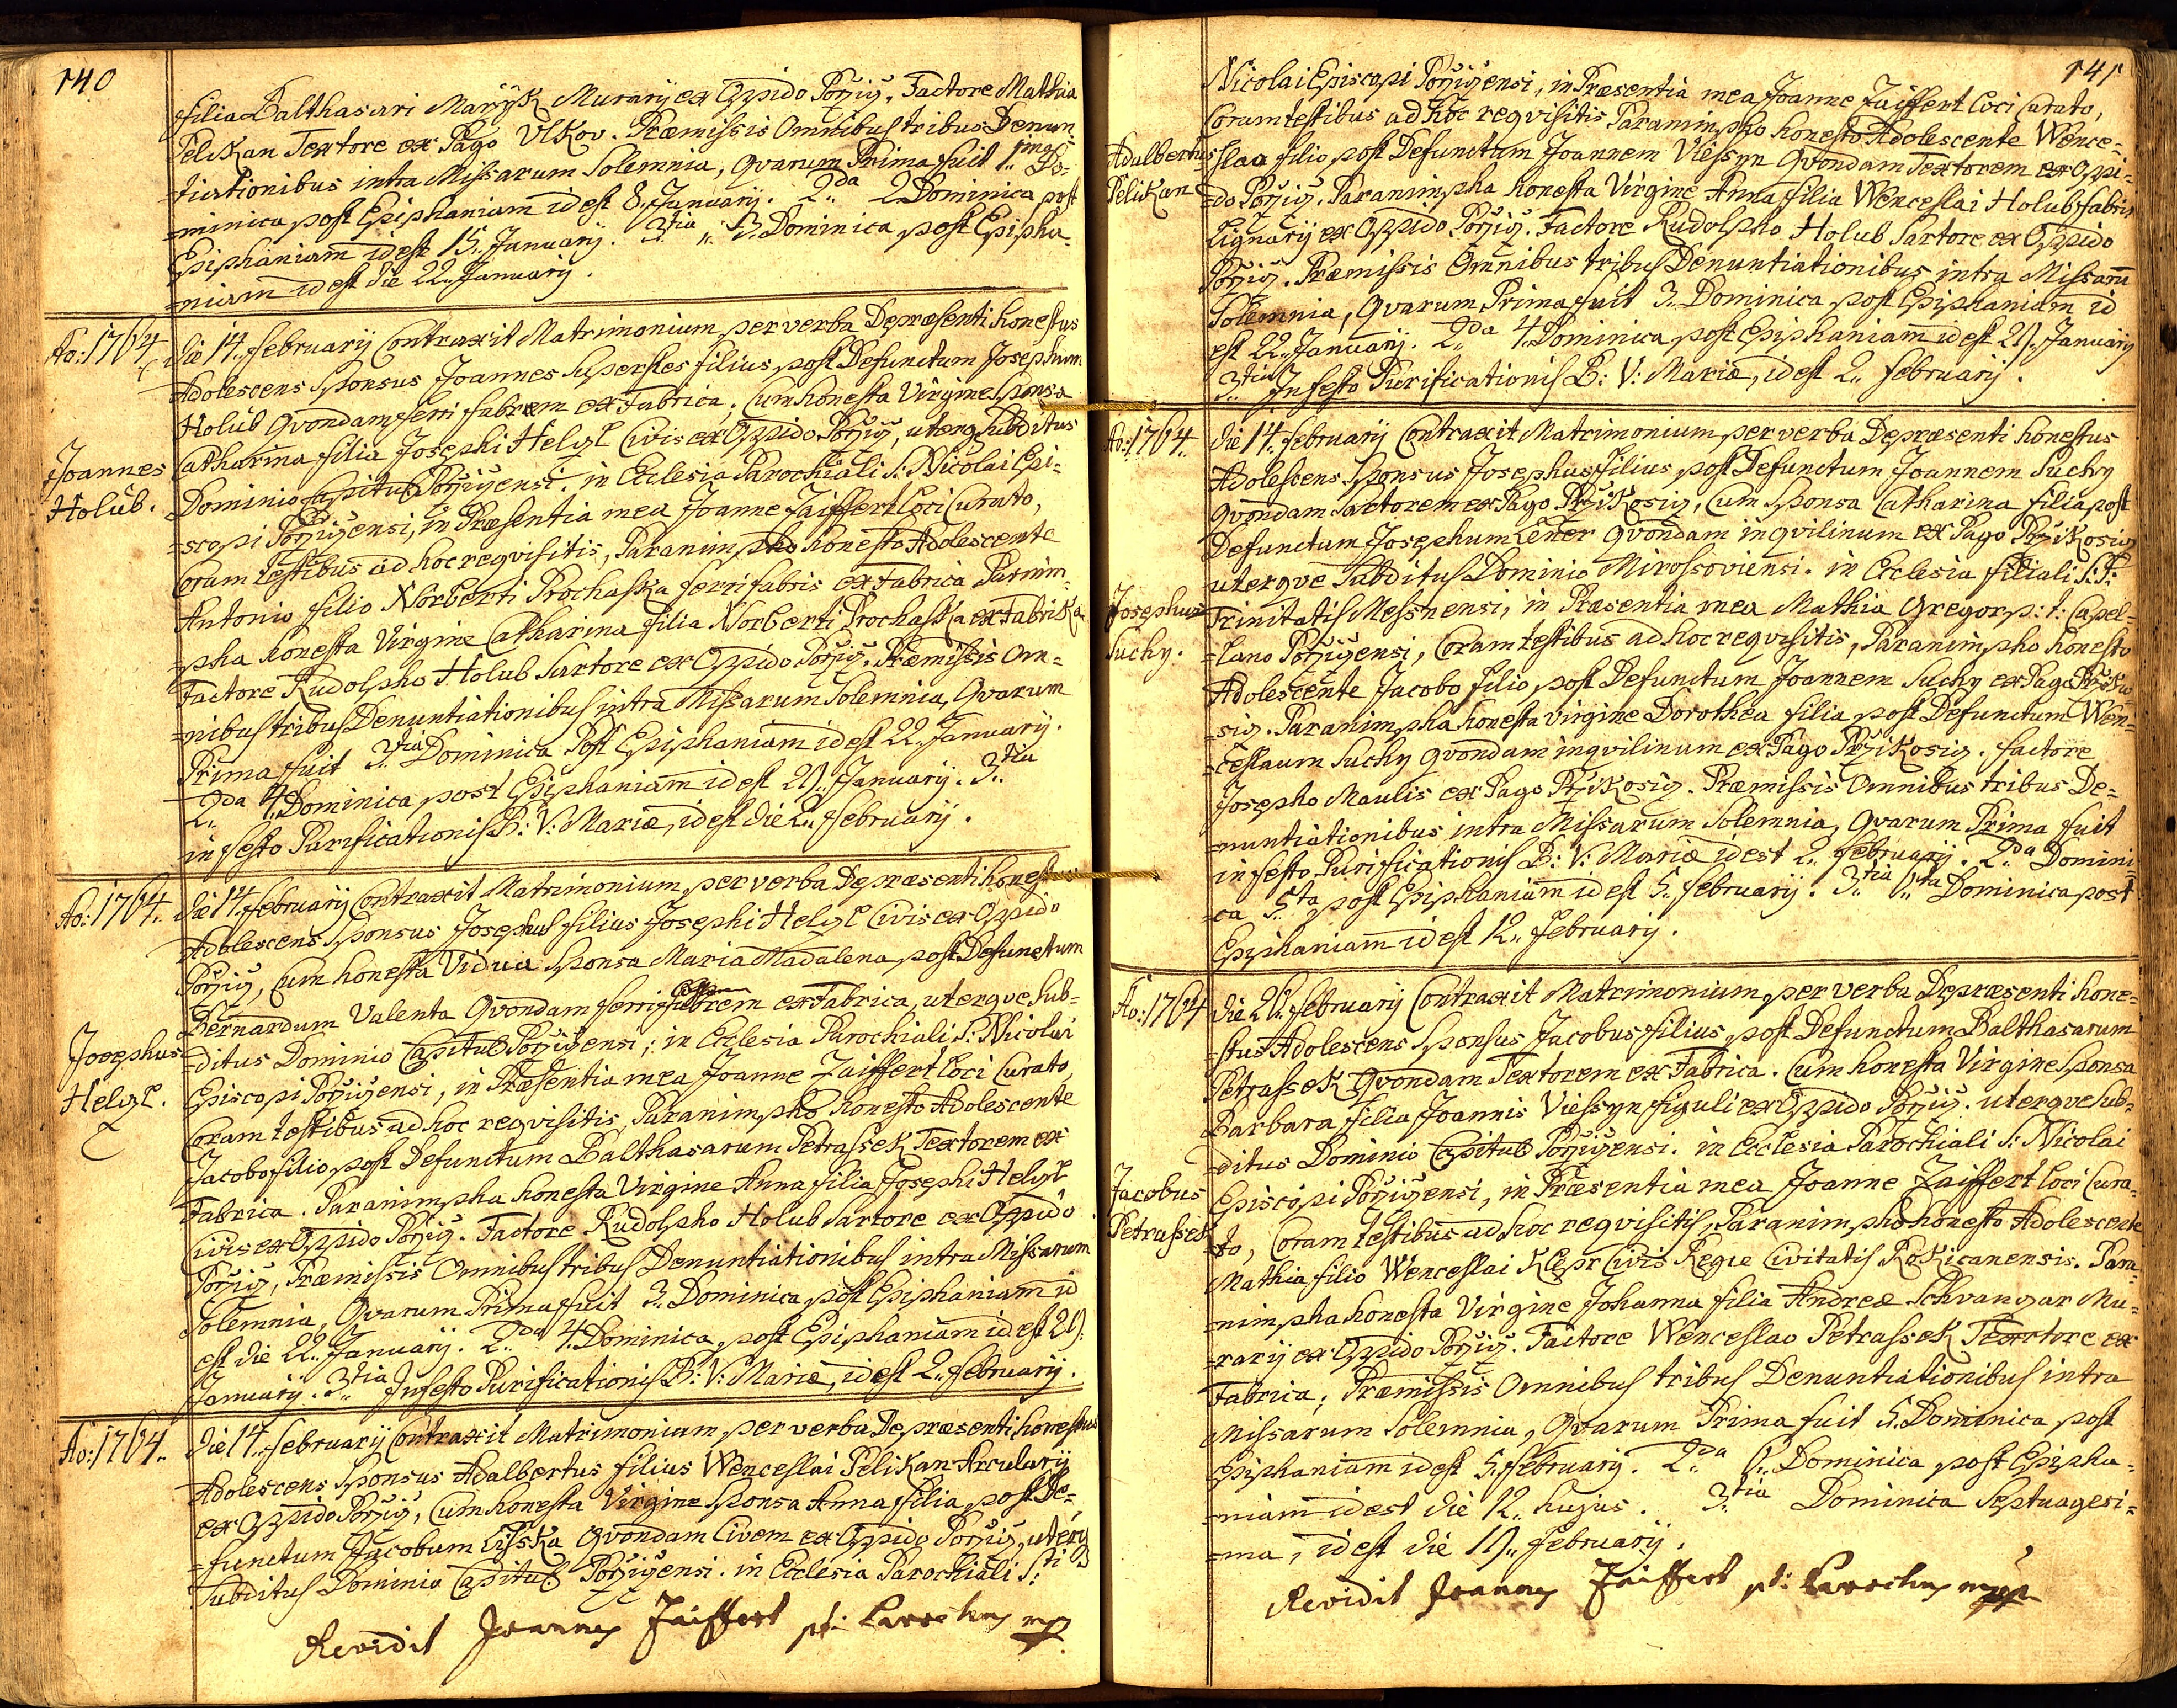 140
filia Balthasari Maržjk Murarij ex Oppido Pořziz. Factore Mathia
Pelikan Textore ex Pago Vlkov. Præmissis Omnibus tribus Denun-
tiationibus intra Missarum Solemnia, Qvarum Prima fuit 1ma Do-
=minica post Epiphaniam id est 8. Januarij. 2da 2. Dominica post
Epiphaniam id est 15. Januarij. 3tia 3. Dominica post Epipha-
=niam id est die 22. Januarij.
Ao: 1764
die 14. februarij Contraxit Matrimonium per verba Depræsenti honestus
Adolescens Sponsus Joannes superstes filius post Defunctum Josephum
Holub Qvondam ferri fabrem ex Fabrica, Cum honesta Virgine Sponsa
Joannes
Holub.
Catharina filia Josephi Helgl Civis ex Oppido Pořziz, uterq Subditus
Dominio Capitul Pořzizensi. in Ecclesia Parochiali S: Nicolai Epi=
=scopi Pořzizensi, in Præsentia mea Joanne Zaiffert loci Curato,
Coram testibus ad hoc reqvisitis, Paranimpho honesto Adolescente
Antonio filio Norberti Prochaska ferri fabris ex Fabrica Parnim-
=pha honesta Virgine Catharina filia Norberti Prochaska ex Fabrika
Factore Rudolpho Holub Sartore ex Oppido Pořziz. Præmissis Om=
=nibus tribus Denuntiationibus intra Missarum Solemnia, Qvarum
Prima fuit 3tia Dominica Post Epiphaniam id est 22. Januarij.
2da 4. Dominica post Epiphaniam id est 29. Januarij. 3tia
in festo Purificationis B: V: Mariæ, id est die 2. februarij.
Ao: 1764.
die 14. februarij Contraxit Matrimonium per verba Depræsenti honestus
Adolescens Sponsus Josephus filius Josephi Helgl Civis ex Oppido
Pořziz, Cum honesta Vidua Sponsa Maria Madalena post Defunctum
Bernardum Valenta Qvondam ferri fabrem ex Fabrica, uterqve Sub=
Josephus
Helgl.
=ditus Dominio Capitul Pořzizensi; in Ecclesia Parochiali S: Nicolai
Episcopi Pořzizensi, in Præsentia mea Joanne Zaiffert loci Curato,
Coram testibus ad hoc reqvisitis, Paranimpho honesto Adolescente
Jacobo filio post Defunctum Balthasarum Petrassek Textorem ex
Fabrica. Paranimpha honesta Virgine Anna filia Josephi Helgl
Civis ex Oppido Pořziz. Factore Rudolpho Holub Sartore ex Oppido
Pořziz, Præmissis Omnibus tribus Denuntiationibus intra Missarum
Solemnia, Qvarum Prima fuit 3. Dominica post Epiphaniam id
est die 22. Januarij. 2da 4. Dominica post Epiphaniam id est 29.
Januarij. 3tia In festo Purificationis B: V: Mariæ, id est 2. februarij.
Ao: 1764.
die 14. februarij Contraxit Matrimonium per verba Depræsenti honestus
Adolescens Sponsus Adalbertus filius Wenceslai Pelikan Arcularij
ex Oppido Pořziz, Cum honesta Virgine Sponsa Anna filia post De=
=functum Jacobum Lisska Qvondam Civem ex Oppido Pořziz, uterq
Subditus Dominio Capitul Pořzizensi. in Ecclesia Parochiali S:ti
Revidit Joannes Zaiffert pt: Parochus mp
141
Nicolai Episcopi Pořzizensi, in Præsentia mea Joanne Zaiffert loci Curato,
Coram testibus ad hoc reqvisitis Paranimpho honesto Adolescente Wence=
Adalbertus
Pelikan
=slao filio post Defunctum Joannem Viessyn Qvondam Textorem ex Oppi=
=do Pořziz. Paranimpha honesta Virgine Anna filia Wenceslai Holub fabri
Lignarij ex Oppido Pořziz. Factore Rudolpho Holub Sartore ex Oppido
Pořziz. Præmissis Omnibus tribus Denuntiationibus intra Missarum
Solemnia, Qvarum Prima fuit 3. Dominica post Epiphaniam id
est 22. Januarij. 2da 4. Dominica post Epiphaniam id est 29. Januarij
3tia In festo Purificationis B: V: Mariæ, id est 2. februarij.
Ao: 1764.
die 14. februarij Contraxit Matrimonium per verba Depræsenti honestus
Adolescens Sponsus Josephus filius post Defunctum Joannem Suchy
Qvondam Sartorem ex Pago Przikosiz, Cum Sponsa Catharina filia post
Defunctum Josephum Lener Qvondam inqvilinum ex Pago Przikosiz
uterqve Subditus Dominio Mirossoviensi. in Ecclesia filiali S: S:
Josephus
Suchy.
Trinitatis Messnensi, in Præsentia mea Mathia Gregor p: t: Capel=
=lano Pořzizensi, Coram testibus ad hoc reqvisitis, Paranimpho honesto
Adolescente Jacobo filio post Defunctum Joannem Suchy ex Pago Prziko
=siz. Paranimpha honesta virgine Dorothea filia post Defunctum Wen=
=ceslaum Suchy qvondam inqvilinum ex Pago Przikosiz. factore
Josepho Maulis ex Pago Przikosiz. Præmissis Omnibus tribus De=
=nuntiationibus intra Missarum Solemnia, Qvarum Prima fuit
in festo Purificationis B: V: Mariæ id est 2. februarij. 2da Domini=
=ca 5ta post Epiphaniam id est 5. februarij. 3tia 6ta Dominica post
Epiphaniam id est 12. februarij.
Ao: 1764
die 26. februarij Contraxit Matrimonium per verba Depræsenti hone=
=stus Adolescens Sponsus Jacobus filius post Defunctum Balthasarum
Petrassek Qvondam Textorem ex Fabrica. Cum honesta Virgine Sponsa
Barbara filia Joannis Viessyn figuli ex Oppido Pořziz. uterqve Sub=
=ditus Dominio Capitul Pořzizensi. in Ecclesia Parochiali S: Nicolai
Jacobus
Petrassek
Episcopi Pořzizensi, in Præsentia mea Joanne Zaiffert loci Cura=
=to, Coram testibus ad hoc reqvisitis, Paranimpho honesto Adolescente
Mathia filio Wenceslai Klepr Civis Regiæ Civitatis Rokicanensis. Para=
=nimpha honesta Virgine Johanna filia Andreæ Schvangar Mu=
=rarij ex Oppido Pořziz. Factore Wenceslao Petrassek Textore ex
Fabrica; Præmissis Omnibus tribus Denuntiationibus intra
Missarum Solemnia, Qvarum Prima fuit 5. Dominica post
Epiphaniam id est 5. februarij. 2da 6. Dominica post Epipha=
=niam id est die 12. hujus. 3tia Dominica Septuagesi=
=ma, id est die 19. februarij.
Revidit Joannes Zaiffert pt: Parochus mp